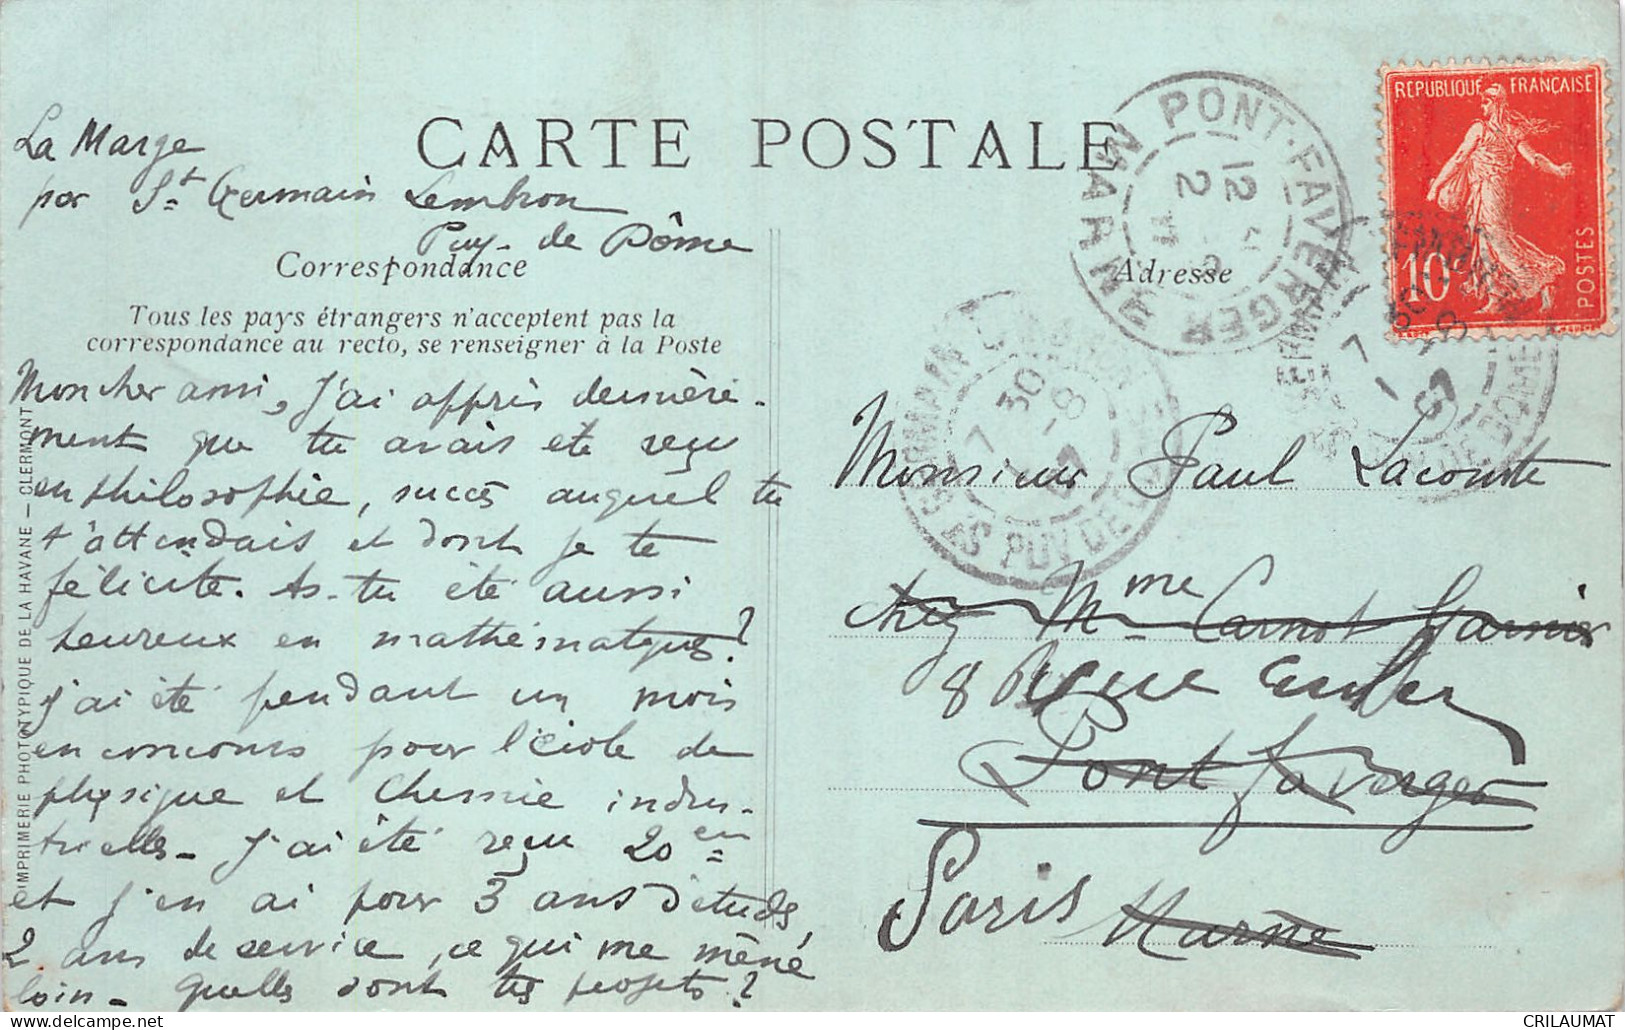 CARTE POSTALE
La Marge
par St Germain Lembron
Puy-de Dôme
Correspondance
Tous les pays étrangers n'acceptent pas la
correspondance au recto, se renseigner à la Poste
Mon cher ami, J'ai appris dernière-
ment que tu avais été reçu
en philosophie, succès auquel tu
t'attendais et dont je te
félicite. As-tu été aussi
heureux en mathématques?
j'ai été pendant un mois
en concours pour l'école de
physique et Chemie indus-
trielles- J'ai été reçu 20en
et j'en ai pour 3 ans d'études,
2 ans de service, ce qui me mène
loin- quelles sont tes projets?
IMPRIMERIE PHOTOTYPIQUE DE LA HAVANE - CLERMONT
REPUBLIQUE FRANÇAISE
10c
POSTES
PONT-FAVERGER
MARNE
12
2
Adresse
ST GERMAIN LEMBRON
PUY DE DOME
7 30
1-8
ST GERMAIN LEMBRON
PUY DE DOME
7 30
1-8
Monsieur Paul Lacomte
chez Mme Carnot Garnier
8 Rue Euler
Pont faverger
Paris Marne
CRILAUMAT